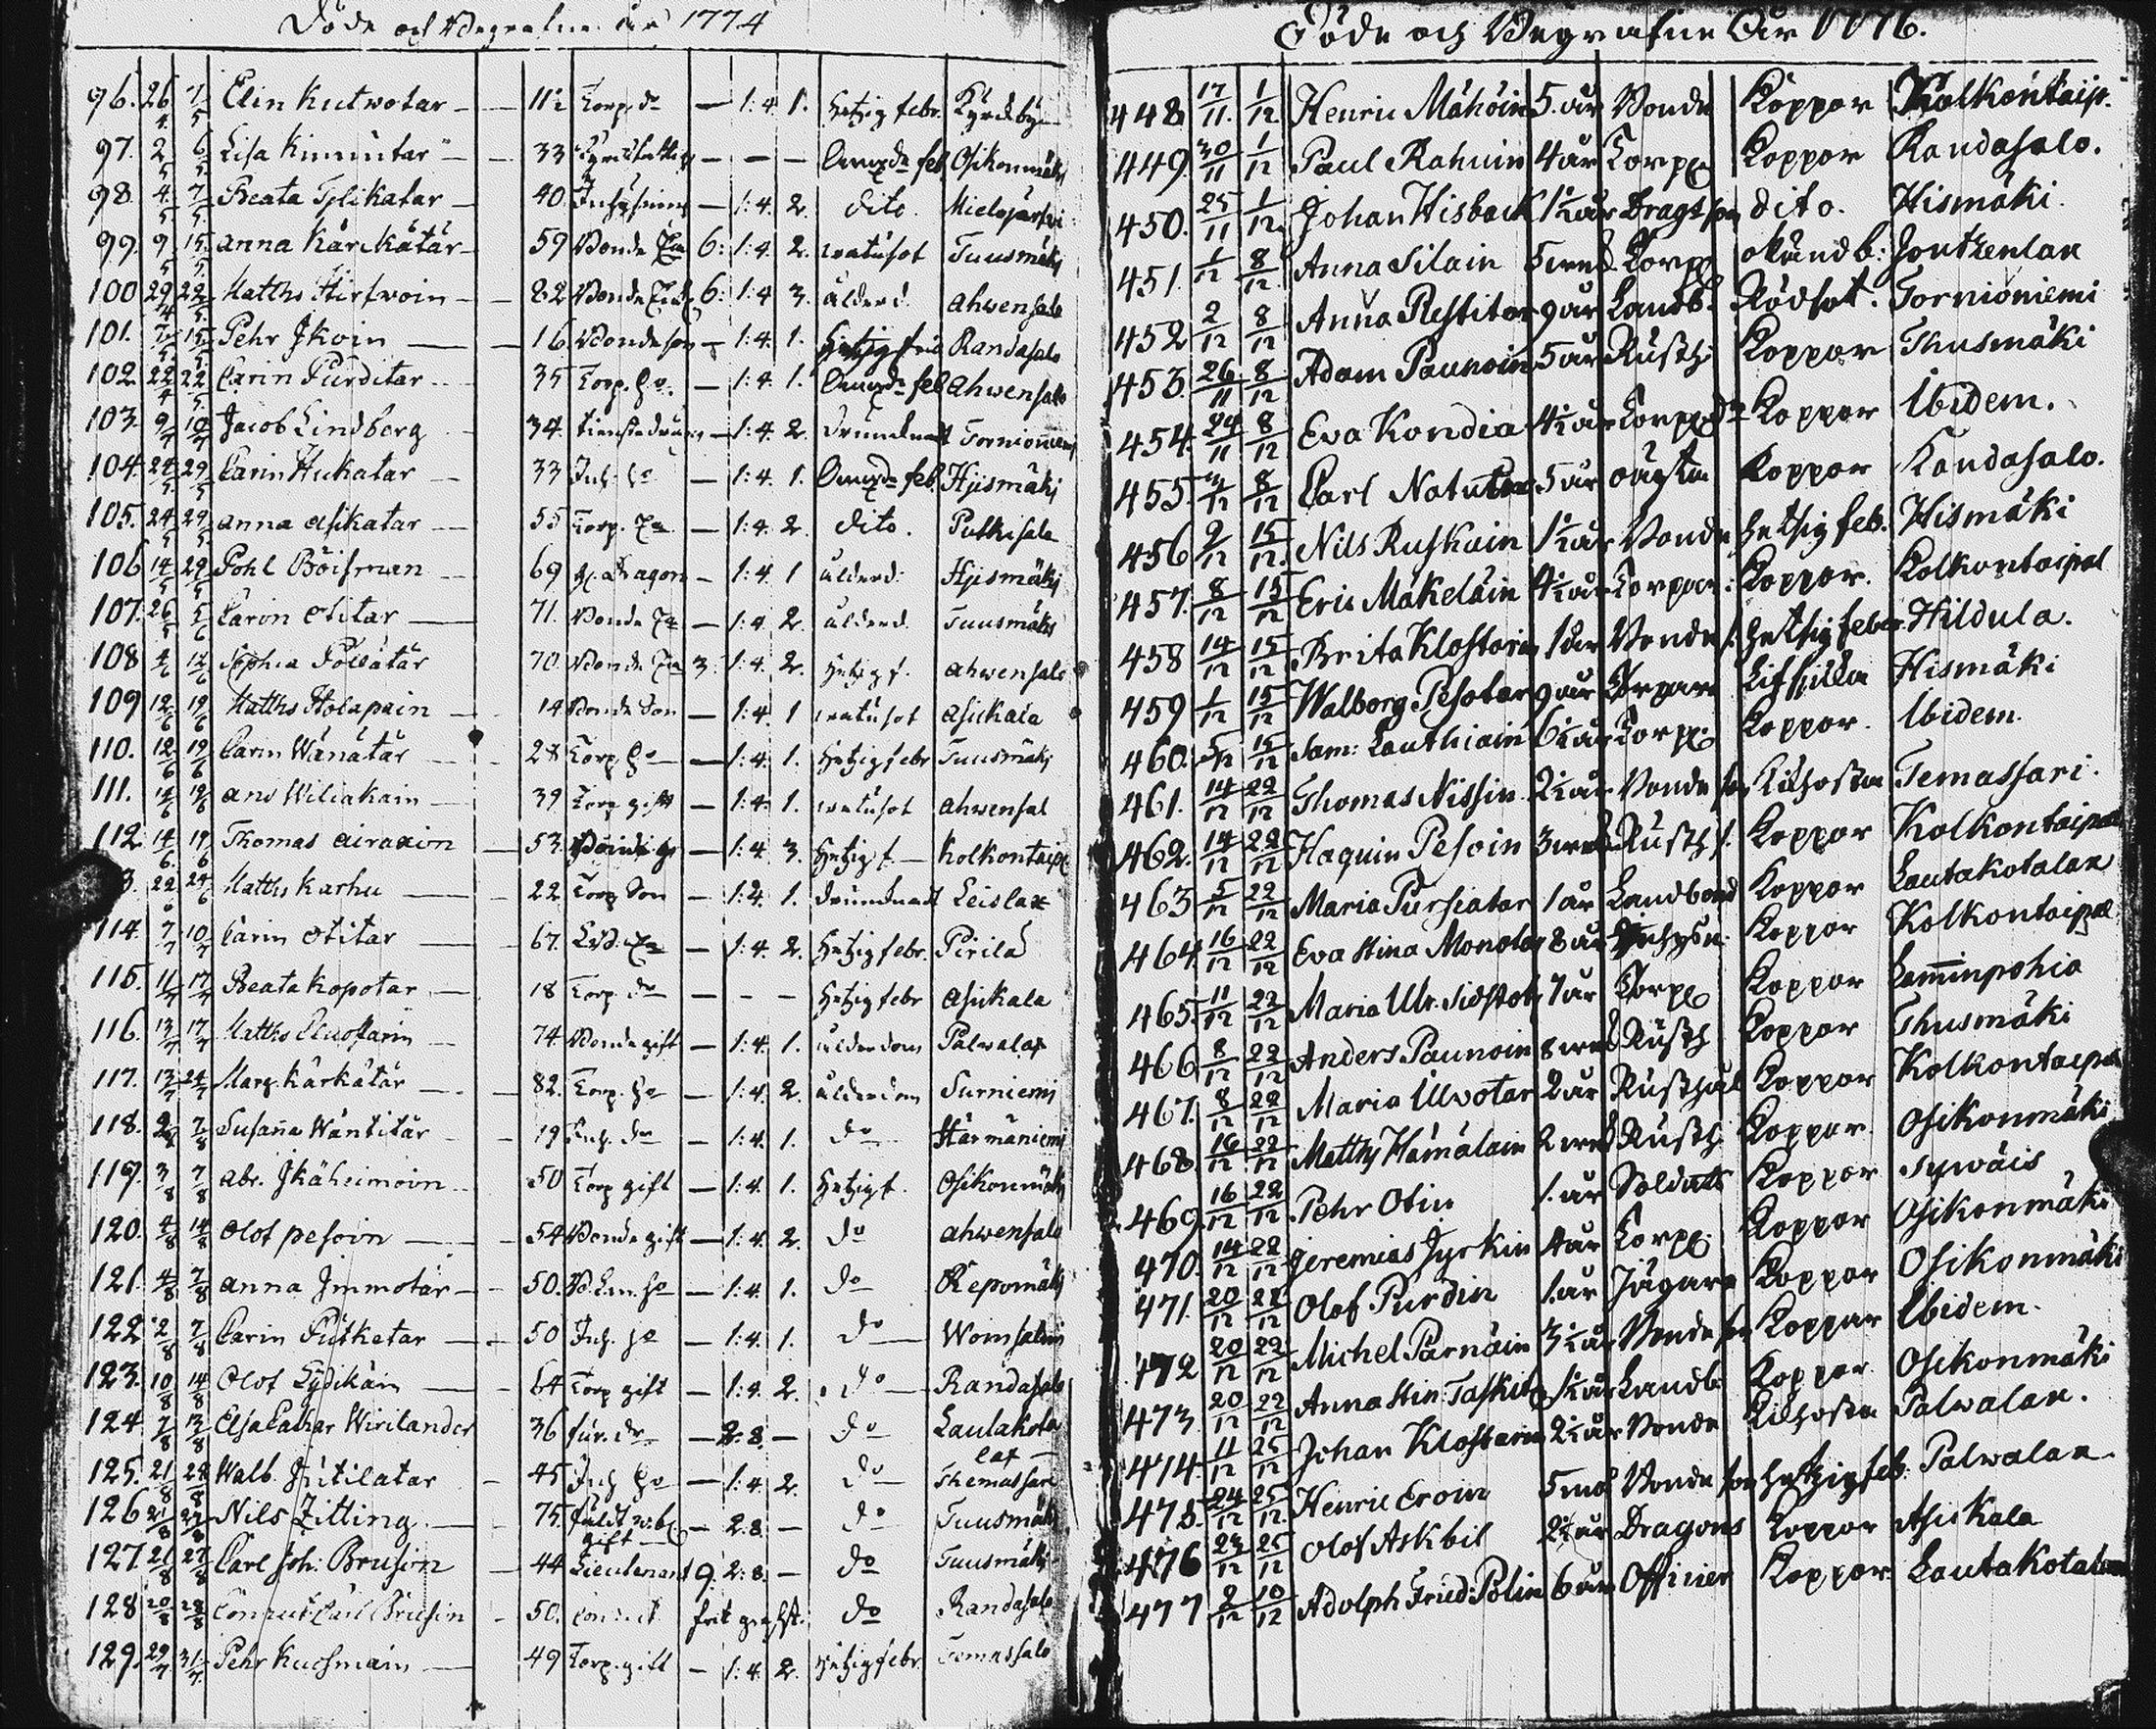 Döde och Begrafne år 1774
96. 26/4 1/5 Elin Kutwotar — 11½ Torp. dr — 1:4. 1. Hetzig febr. Kyrckby
97. 2/5 6/5 Lisa Kinnutar — 33 — — — feb. Osikonmäki
98. 4/5 7/5 Beata — 40. — 1:4. 2. dito.
99. 9/5 15/5 Anna Kärckätär — 59 Bonde 6: 1:4 2. watusot Tuusmäki
100 29/4 22/5 Matths Hirfwoin — 82 Bonde 6: 1:4 3. ålderd. Ahwensalo
101. 7/5 15/5 Pehr Ikoin — 16 Bondeson — 1:4. 1. Randasalo
102. 22/4 22/5 Carin Purditar — 35 Torp. ho. — 1:4. 1. feb Ahwensalo
103. Jacob Lindberg 34. — 1:4. 2. Drunknat Tornioniemi
104. 24/5 29/5 Carin Hukatar — 33 Inh. ho — 1:4. 1. feb. Hjismäki
105. 24/5 29/5 Anna Asikatar — 55 Torp. — 1:4. 2. dito. Putkisalo
106 14/5 29/5 Pohl Böisman — 69 Dragon — 1:4. 1 ålderd. Hjismäki
107. 26/5 5/6 Carin Otitar — 71. Bonde — 1:4. 2. ålderd. Tuusmäki
108 4/6 12/6 Sophia 70. Bonde 3. 1:4. 2. Hetzig f. Ahwensalo
109 12/6 19/6 Matths Holapain — 14 Bonde Son — 1:4. 1 watusot Asickala
110. 12/6 19/6 Carin Wänätär — 28 Torp. ho — 1:4. 1. Hetzig febr Tuusmäki
111. 14/6 19/6 And Wiliakain — 39 Torp gift — 1:4. 1. watusot Ahwensal
112. 14/6 19/6 Thomas Airaxin — 53. Bonde — 1:4 3. Hetzig f. — Kolkontaip.
3. 22/6 24/6 Matths Karhu — 22 Torp Son — 1:4. 1. drunknat Leislax
114. 7/7 10/7 Carin Otitar — 67. — 1:4. 2. Hetzig febr. Pirilä
115. 11/7 17/7 Beata Kopotar — 18 Torp. dr — — — Hetzig febr Asikala
116. 13/7 17/7 Matths — 74. Bonde gift — 1:4. 1. ålderdom Palwalax
117. 13/7 24/7 Marg. Kärkätär — 82. Torp. ho — 1:4. 2. ålderdom Surniemi
118. 2/8 7/8 Susana Wäntitär — 19 Inh. dr — 1:4. 1. do Härmäniemi
119. 3/8 7/8 Abr. Ikäheimoin — 50 Torp gift — 1:4. 1. Hetzig f. Osikonmäki
120. 4/8 14/8 Olof Pesoin — 54 Bonde gift — 1:4. 2. do Ahwensalo
121. 4/8 7/8 Anna Immotar — 50. — 1:4. 1. do Repomäki
122 2/8 7/8 Carin Putketar — 50 Inh. ho — 1:4. 1. do
123. 10/8 14/8 Olof Lydikäin — 64 Torp gift — 1:4. 2. do — Randasalo
124 7/8 13/8 Elsa Cathar Wirilander 36 — 2:8. — do Lautakota
lax
125. 21/8 28/8 Walb. Jutilatar — 45 Inh ho — 1:4. 2. do Themassari
126 21/8 Nils Zitting — 75. — 2:8. — do Tuusmäki
gift
127. 21/8 27/8 Carl Joh: Brusin — 44 Lieutenant 9. 2:8. — do Tuusmäki
128 20/8 28/8 Brusin — 50. do Randasalo
129. Pehr Kuosmain — 49 Torp. gift — 1:4. 2. Hetzig febr. Tomassalo
Döde och Begrafne År 1776.
448. 17/11 1/12 Henric Mähöin 5. år Bonde Koppor Kolkontaip.
449. 30/11 1/12 Paul Rahuin 4 år Torp. Koppor Randasalo.
450. 25/11 1/12 Johan Hisback 1½ år Drag. son dito. Hismäki.
451. 1/12 8/12 Anna Silain 5 Torp okänd b: Joutzenlax
452 2/12 8/12 Anna Restitar 9 år Landb. Rödsot. Tornioniemi
453. 26/11 8/12 Adam Paunoin 5 år Rusth. Koppor Thusmäki
454. 24/11 8/12 Eva Kondia 4½ år Torp. Koppor Ibidem.
455. 8/12 Carl 5 år oägta Koppor Randasalo.
456 9/12 15/12 Nils Ruskain 1½ år Bonde hetsig feb. Hismäki
457. 8/12 15/12 Eric Mäkeläin 4½ år Torpar: Koppor. Kolkontaipal
458 14/12 15/12 Brita Klostari 1 år Bonde hetsig feber. Hildula.
459 1/12 15/12 Walborg Pesotar 9 år Torpare Hismäki
460. 5/12 15/12 Sam: Lauthiain 6½ år Torp. Koppor. Ibidem.
461. 14/12 22/12 Thomas Nissin 2½ år Bonde son Kikhosta Temassari.
462. 14/12 22/12 Haquin Pesoin 3 Rusth. Koppor Kolkontaipal
463 5/12 22/12 Maria Pursiatar 1 år Landbond Koppor Lautakotalax
464. 16/12 22/12 Eva Stina Monotar 8 år Inhyse Koppor Kolkontaipal
465. 11/12 22/12 Maria Ulr. 7 år Torp. Koppor Laminpohia
466 8/12 22/12 Anders Paunoin 8 Rusth Koppor Thusmäki
467. 8/12 22/12 Maria Ulvotar 2 år Rusthål Koppor Kolkontaipal
468. 16/12 22/12 Matths Hämälain 2 Rusth. Koppor. Osikonmäki
469. 16/12 22/12 Pehr Otin 1. år Soldats Koppor Sywäis
470. 14/12 22/12 Jeremias Jyrkin 4 år Torp. Koppor Osikonmäki
471. 20/12 22/12 Olof Purdin 1. år Jägare Koppor Osikonmäki
472 20/12 22/12 Michel Pärnäin 3½ år Bonde son Koppor Ibidem.
473. 20/12 22/12 Anna Stin: Taskit 1½ år Landb. Koppor Osikonmäki
474. 11/12 25/12 Johan Klostarin 2½ år Bonde Kikhosta Palwalax.
475. 24/12 25/12 Henric Eroin 5 Bonde son hetzig feb. Palwalax.
476 23/12 25/12 Olof Askbil 2½ år Dragons Koppor Asikala
477 2/12 10/12 Adolph Fried: Polin 6 år Officer Koppor Lautakotalax